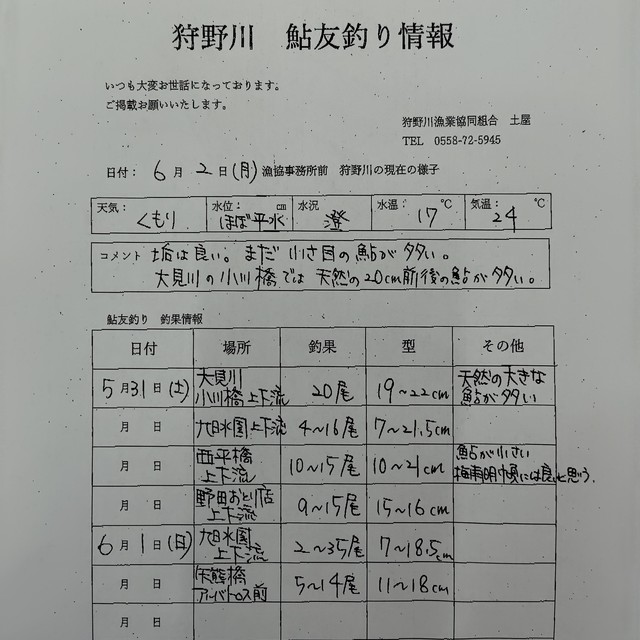 狩野川　鮎友釣り情報
いつも大変お世話になっております。
ご掲載お願いいたします。
狩野川漁業協同組合　土屋
TEL　0558-72-5945
日付： 6 月 2 日(月) 漁協事務所前　狩野川の現在の様子
天気： くもり 水位： ほぼ平水 ㎝ 水況 澄 水温： 17 ℃ 気温： 24 ℃
コメント 垢は良い。まだ 小さ目の鮎が多い。
大見川の小川橋では 天然の20cm前後の鮎が多い。
鮎友釣り　釣果情報
日付 場所 釣果 型 その他
5 月 31 日 (土) 大見川 小川橋上下流 20尾 19～22cm 天然の大きな 鮎が多い
月　日 旭水園上下流 4～16尾 7～21.5cm
月　日 西平橋 上下流 10～15尾 10～21cm 鮎が小さい 梅雨明け頃には良いと思う.
月　日 野田おとり店 上下流 9～15尾 15～16cm
6 月 1 日 (日) 旭水園 上下流 2～35尾 7～18.5cm
月　日 橋 アルバトロス前 5～14尾 11～18cm
月　日